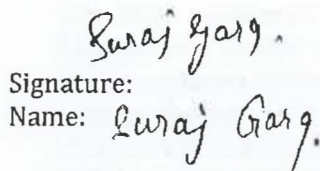 Suraj Garg.
Signature:
Name: Suraj Garg.